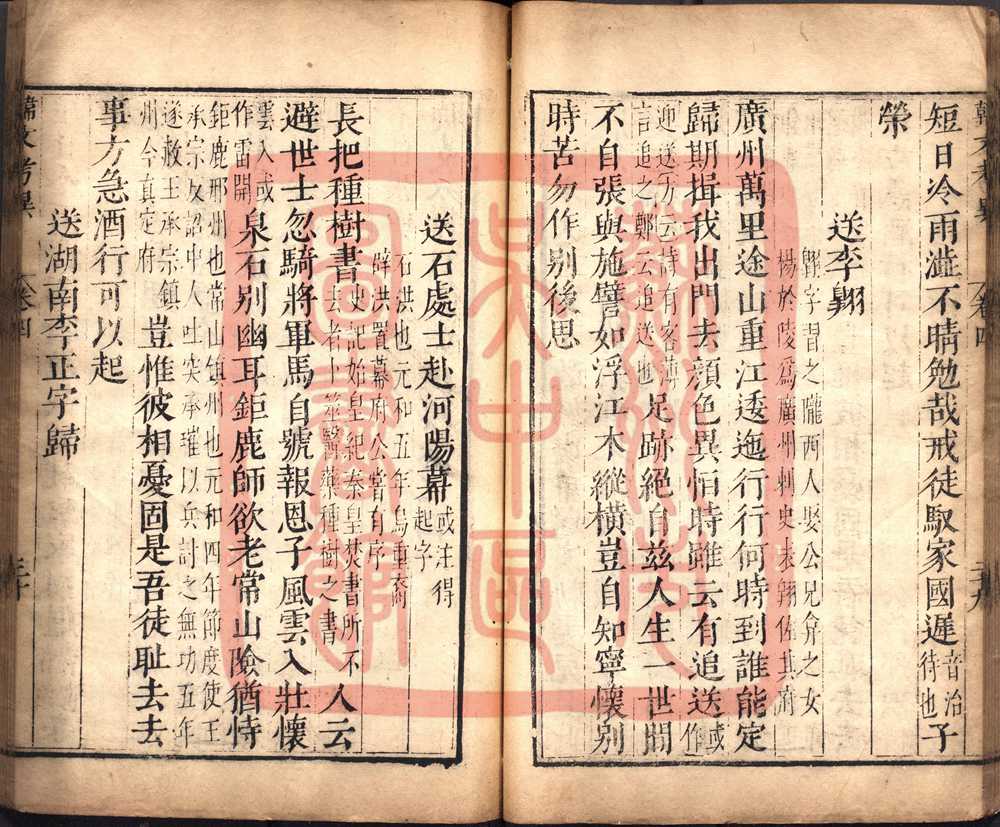 韓文考異 卷四 二十九
短日冷雨澁不晴勉哉戒徒馭家國遲音治待也子
榮
送李翺
翺字習之隴西人娶公兄弇之女
楊於陵爲廣州刺史表翺佐其府
廣州萬里途山重江逶迤行行何時到誰能定
歸期揖我出門去顏色異恒時雖云有追送或作
迎送方云詩有客薄言追之鄭云追送也足跡絕自兹人生一世間
不自張與施譬如浮江木縱橫豈自知寧懷別
時苦勿作別後思
送石處士赴河陽幕或注得起字
石洪也元和五年烏重裔
辟洪置幕府公嘗有序
長把種樹書史記始皇紀秦皇焚書所不去者卜筮醫藥種樹之書人云
避世士忽騎將軍馬自號報恩子風雲入壯懷
雲入或作雷開泉石別幽耳鉅鹿師欲老常山險猶恃
鉅鹿邢州也常山鎮州也元和四年節度使王
承宗反詔中人吐突承璀以兵討之無功五年
遂赦王承宗鎮州今真定府豈惟彼相憂固是吾徒耻去去
事方急酒行可以起
送湖南李正字歸
韓文考異 卷四 三十
蘇州市
吳中區
圖書館